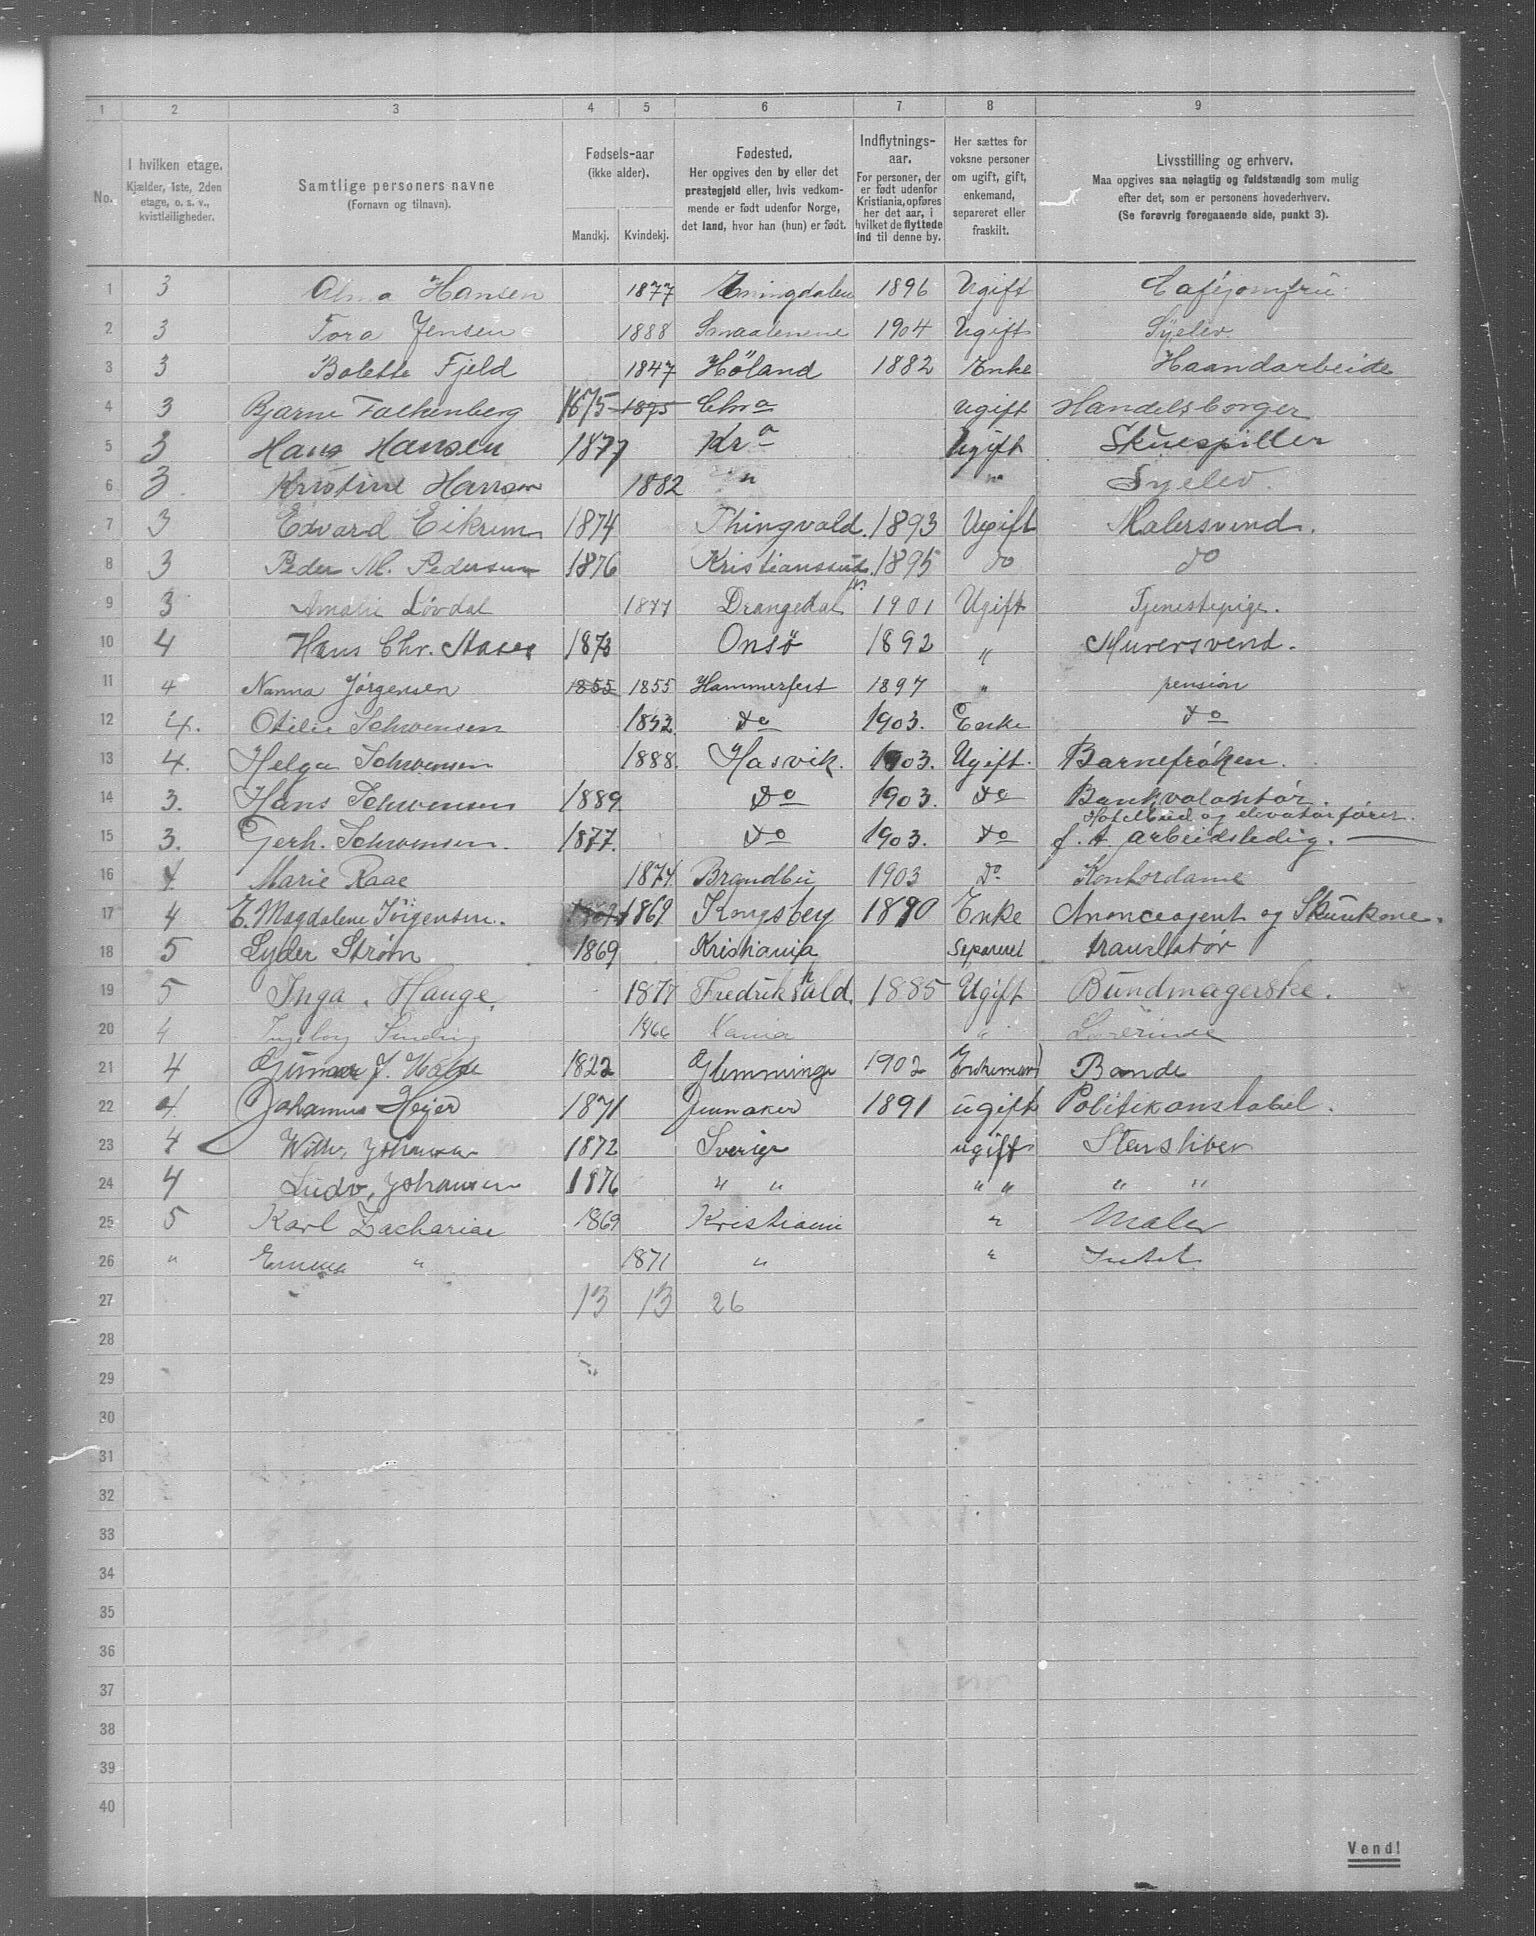 1 2 3 4 5 6 7 8 9
No. I hvilken etage. Kjælder, 1ste, 2den etage, o. s. v., kvistleiligheder. Samtlige personers navne (Fornavn og tilnavn). Fødsels-aar (ikke alder). Mandkj. Kvindekj. Fødested. Her opgives den by eller det prestegjeld eller, hvis vedkommende er født udenfor Norge, det land, hvor han (hun) er født. Indflytnings-aar. For personer, der er født udenfor Kristiania, opføres her det aar, i hvilket de flyttede ind til denne by. Her sættes for voksne personer om ugift, gift, enkemand, separeret eller fraskilt. Livsstilling og erhverv. Maa opgives saa nøiagtig og fuldstændig som mulig efter det, som er personens hovederhverv. (Se forøvrig foregaaende side, punkt 3).
1 3 Alma Hansen 1877 1896 Ugift Caféjomfru
2 3 Tora Jensen 1888 Smaalenene 1904 Ugift Syelev
3 3 Bolette Fjeld 1847 Höland 1882 Enke Haandarbeide
4 3 Bjarne Falkenberg 1875 1875 Chra Ugift Handelsborger
5 3 Hans Hansen 1877 Kra Ugift Skuespiller
6 3 Kristine Hansen 1882 " " Syelev.
7 3 Edvard Eikrem 1874 Thingvold. 1893 Ugift Malersvend.
8 3 Peder M. Pedersen 1876 Kristianssund N. 1895 do do
9 3 Amalie Løvdal 1877 Drangedal 1901 Ugift Tjenestepige.
10 4 Hans Chr. 1873 Onsö 1892 " Murersvend.
11 4 Nanna Jørgensen 1855 1855 Hammerfest 1897 " pension
12 4. Otilie Schwensen do 1903. Enke do
13 4. Helga Schwensen 1888. Hasvik. 1903. Ugift. Barnefrøken.
14 3. Hans Schwensen 1889 do 1903. do Bankvolontør.
Hotelbud og elevatorfører.
15 3. Gerh. Schwensen. 1877. do 1903. do f. t. arbeidsledig.
16 4. Marie Raae 1874. Brandbu 1903 Do Kontordame
17 4 E. Magdalene Jörgensen. 1869 Kongsberg 1890 Enke Anonceagent og Skuukone.
18 5 Lyder Strøm 1869 Kristiania Separeret translatør
19 5 Inga Hauge. 1877 Fredrikshald. 1885 Ugift Bundmagerske.
20 4 Ingeborg Sinding 1866 " Lærerinde
21 4 Gunnar J. 1822 Glemminge 1902 Enkemand Bonde
22 4. Johannes Hejer 1871 Jevnaker 1891 ugift Politikonstabel.
23 4 Wilh. Johansen 1872 Sverige ugift Stensliber
24 4 Ludv. Johansen 1876 " " " " " "
25 5 Karl Zachariae 1869 Kristiania " Maler
26 " Emma " 1871 " " Intet
27 13 13 26
28
29
30
31
32
33
34
35
36
37
38
39
40
Vend!